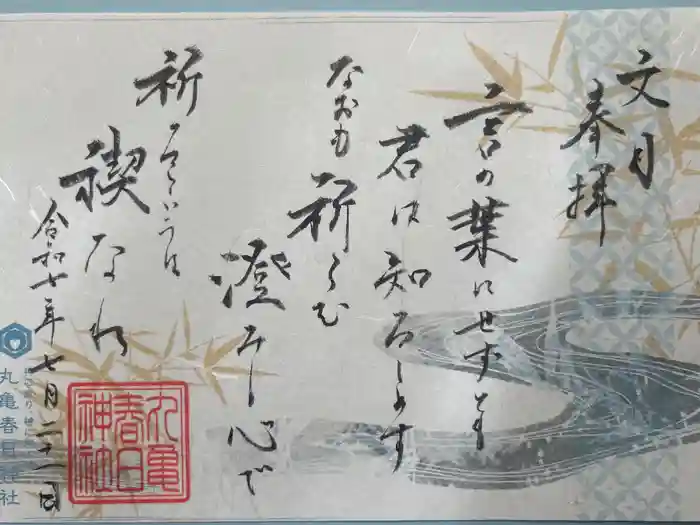 文月
奉拝
言の葉にせずとも
君は知ろしめす
なおも祈らむ
澄みし心で
祈
禊なれ
令和七年七月二十一日
丸亀
春日
神社
丸亀春日神社